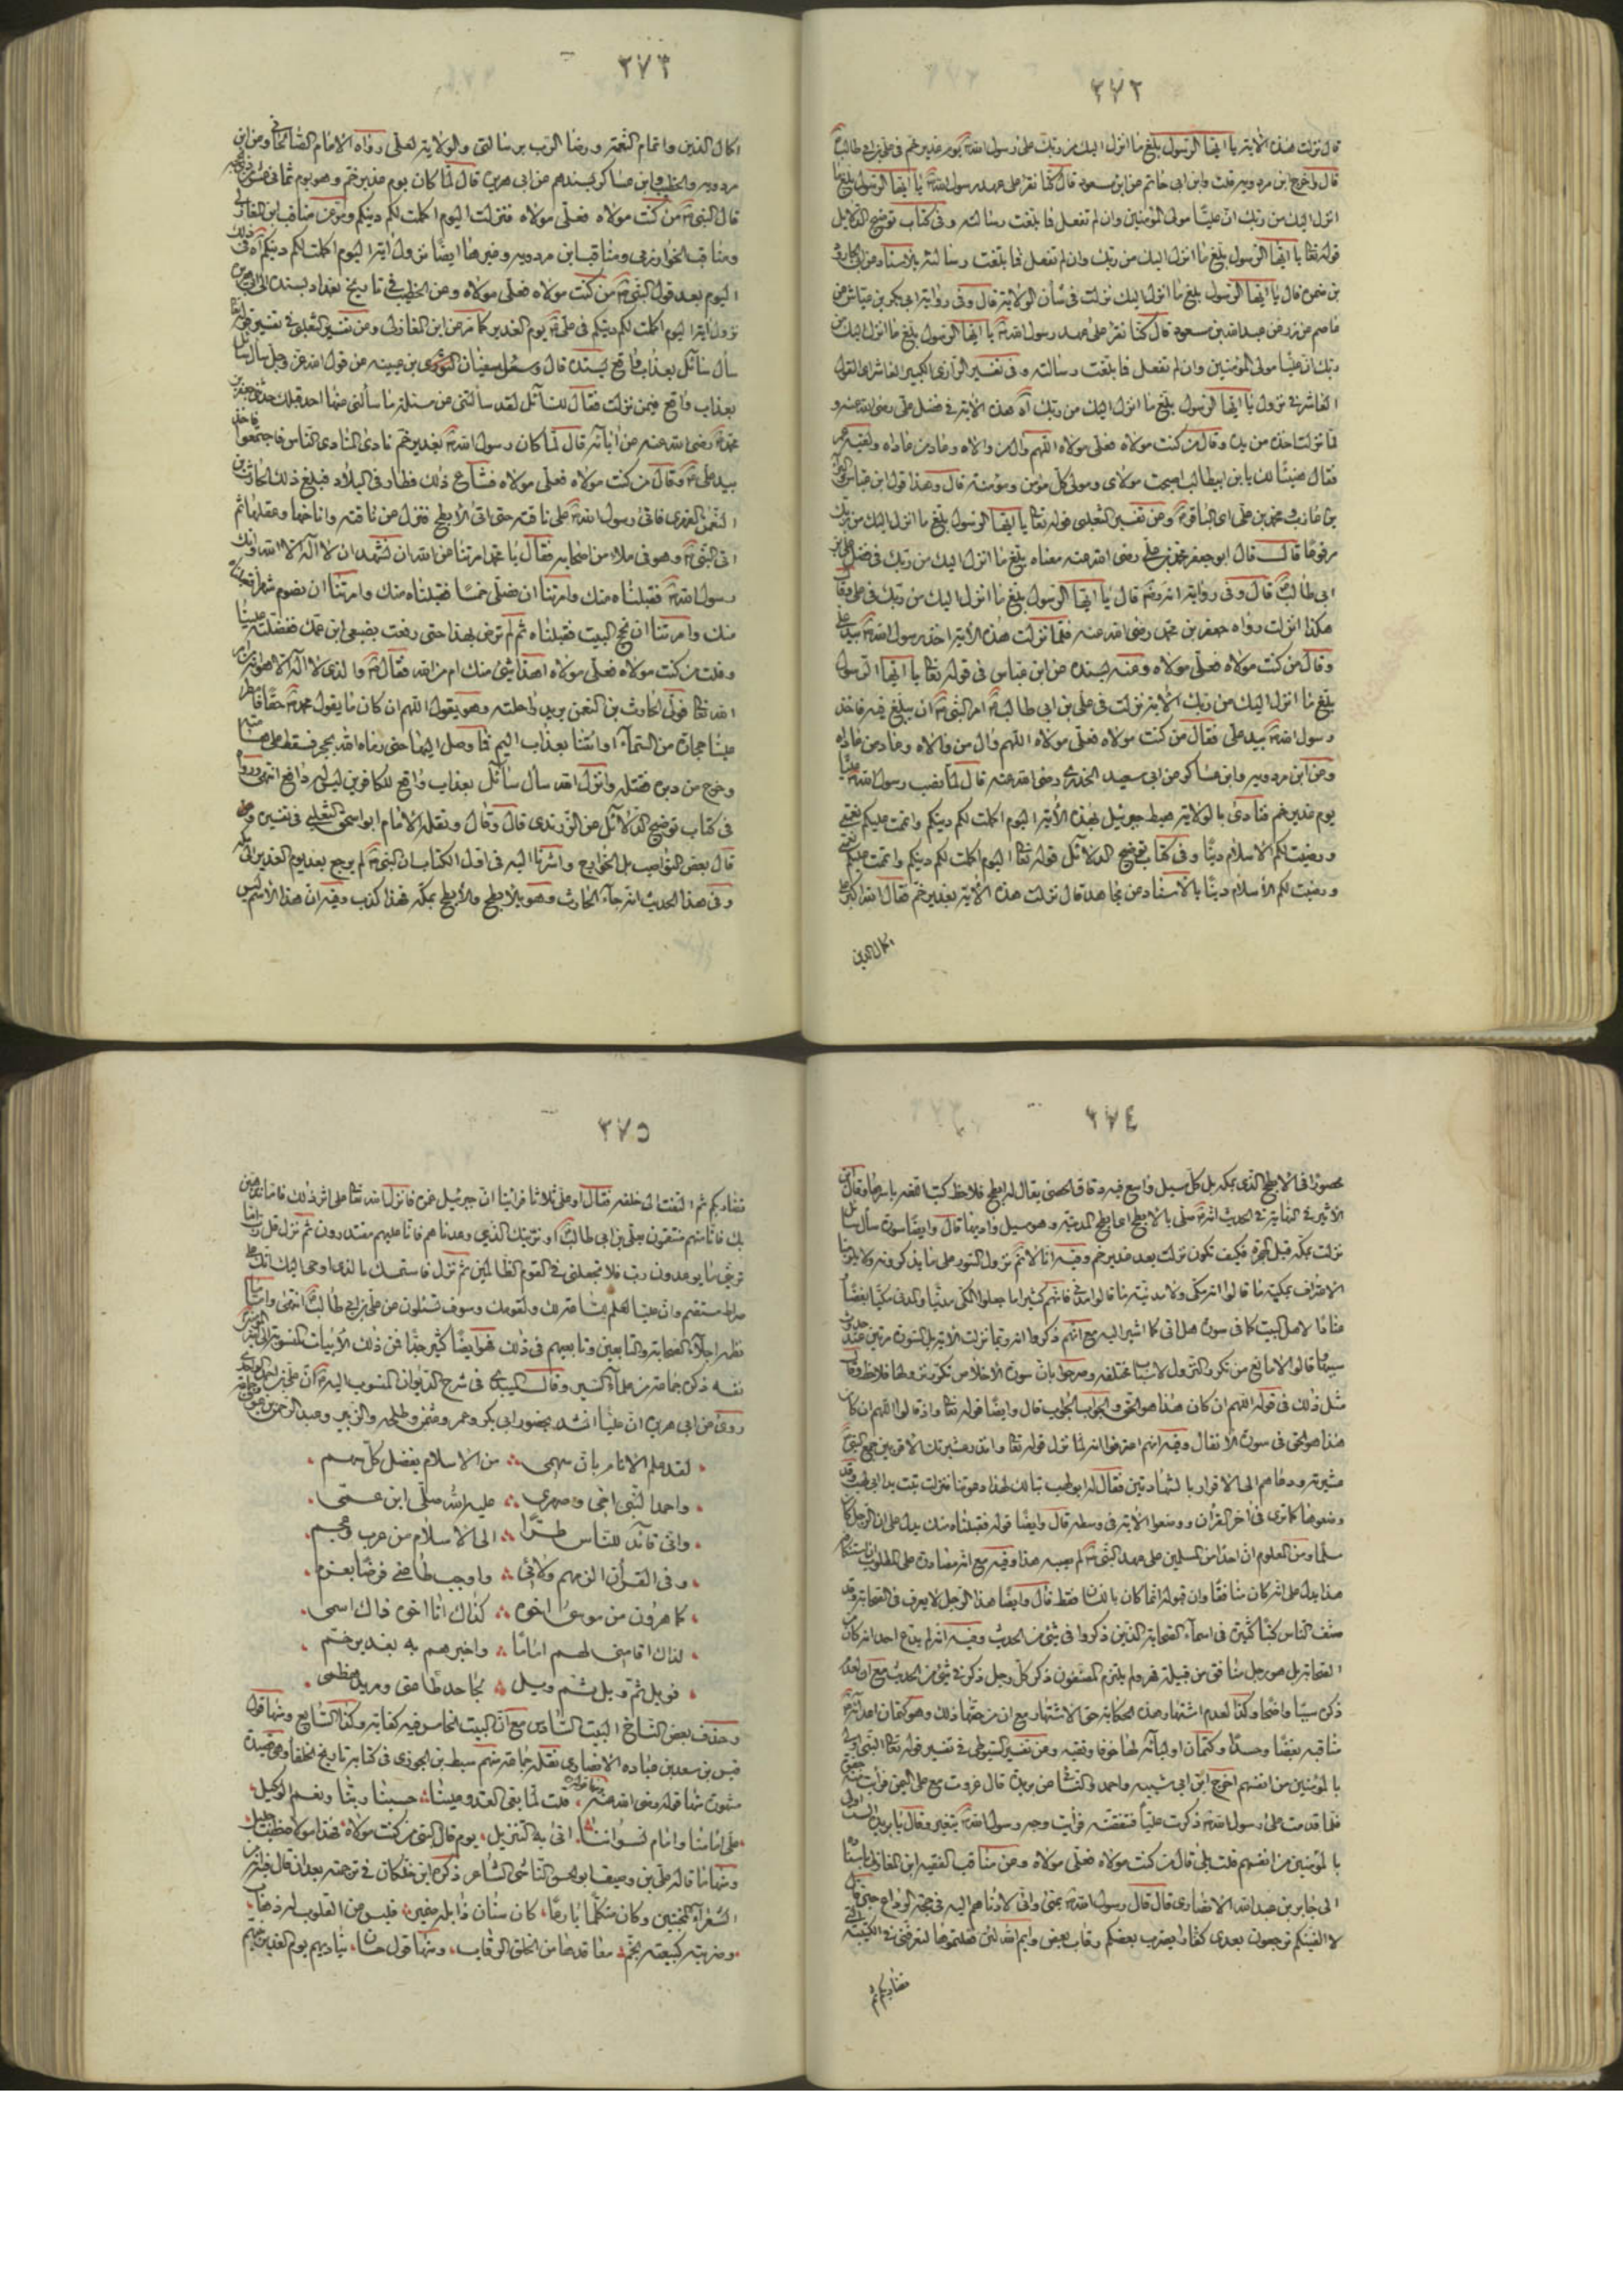 ٢٧٢
قال نزلت هذه الآية يا ايها الرسول بلغ ما انزل اليك من ربك على رسول الله يوم غدير خم في علي بن ابي طالب
قال واخرج ابن مردويه قلت وابن ابي حاتم عن ابن مسعود قال كنا نقرأ على عهد رسول الله يا ايها الرسول بلغ ما
انزل اليك من ربك ان عليا مولى المؤمنين وان لم تفعل فما بلغت رسالته وفي كتاب توضيح الدلايل
قوله تعالى يا ايها الرسول بلغ ما انزل اليك من ربك وان لم تفعل فما بلغت رسالته بالاسناد عن
قال يا ايها الرسول بلغ ما انزل اليك نزلت في شأن الولاية قال وفي رواية ابي بكر بن عياش عن
عاصم عن زر عن عبد الله بن مسعود قال كنا نقرأ على عهد رسول الله يا ايها الرسول بلغ ما انزل اليك من
ربك ان عليا مولى المؤمنين وان لم تفعل فما بلغت رسالته وفي تفسير الرازي الكبير العاشر اي القول
العاشر في نزول يا ايها الرسول بلغ ما انزل اليك من ربك آه هذه الآية في فضل علي رضي الله عنه و
لما نزلت اخذ من يده وقال من كنت مولاه فعلي مولاه اللهم وال من والاه وعاد من عاداه ولقيه عمر
فقال هنيئا لك يا بن ابيطالب اصبحت مولاي ومولى كل مؤمن ومؤمنة قال وهذا قول ابن عباس
بن عازب ومحمد بن علي اي الباقر وعن تفسير الثعلبي قوله تعالى يا ايها الرسول بلغ ما انزل اليك من ربك
مرفوعا قال قال ابو جعفر محمد بن علي رضي الله عنه معناه بلغ ما انزل اليك من ربك في فضل علي بن
ابي طالب قال وفي رواية انه قال يا ايها الرسول بلغ ما انزل اليك من ربك في علي وقال
هكذا انزلت رواه جعفر بن محمد رضي الله عنه فلما نزلت هذه الآية اخذ رسول الله بيد علي
وقال من كنت مولاه فعلي مولاه وعنه بسنده عن ابن عباس في قوله تعالى يا ايها الرسول
بلغ ما انزل اليك من ربك الآية نزلت في علي بن ابي طالب امر النبي ان يبلغ فيه فاخذ
رسول الله بيد علي فقال من كنت مولاه فعلي مولاه اللهم وال من والاه وعاد من عاداه
وعن ابن مردويه وابن عساكر عن ابي سعيد الخدري رضي الله عنه قال لما نصب رسول الله عليا
يوم غدير خم فنادى بالولاية هبط جبرئيل بهذه الآية اليوم اكملت لكم دينكم واتممت عليكم نعمتي
ورضيت لكم الاسلام دينا وفي كتاب توضيح الدلائل قوله تعالى اليوم اكملت لكم دينكم واتممت عليكم نعمتي
ورضيت لكم الاسلام دينا بالاسناد عن مجاهد قال نزلت هذه الآية بغدير خم فقال الله اكبر على
اكمال الدين
٢٧٣
اكمال الدين واتمام النعمة ورضا الرب برسالتي والولاية لعلي رواه الامام الصالحاني وعن ابن
مردويه والخطيب وابن عساكر بسندهم عن ابي هريرة قال لما كان يوم غدير خم وهو يوم ثماني عشر
قال النبي من كنت مولاه فعلي مولاه فنزلت اليوم اكملت لكم دينكم وعن مناقب ابن المغازلي
ومناقب الخوارزمي ومناقب ابن مردويه وغيرها ايضا نزول آية اليوم اكملت لكم دينكم آه في ذلك
اليوم بعد قول النبي من كنت مولاه فعلي مولاه وعن الخطيب في تاريخ بغداد بسنده الى ابي هريرة
نزول آية اليوم اكملت لكم دينكم في علي يوم الغدير كما مر عن ابن المغازلي وعن تفسير الثعلبي في تفسير قوله تعالى
سأل سائل بعذاب واقع بسنده قال وسئل سفيان بن عيينه عن قول الله عز وجل سأل سائل
بعذاب واقع فيمن نزلت فقال للسائل لقد سألتني عن مسئلة ما سألني عنها احد قبلك حدثني جعفر بن
محمد رضي الله عنه عن آبائه قال لما كان رسول الله بغدير خم نادى المنادي الناس فاجتمعوا فاخذ
بيد علي وقال من كنت مولاه فعلي مولاه فشاع ذلك فطار في البلاد فبلغ ذلك الحارث بن
النعمن الفهري فاتى رسول الله على ناقته حتى اتى الابطح فنزل عن ناقته واناخها وعقلها ثم
اتى النبي وهو في ملاء من اصحابه فقال يا محمد امرتنا عن الله ان نشهد ان لا اله الا الله وانك
رسول الله فقبلناه منك وامرتنا ان نصلي خمسا فقبلناه منك وامرتنا ان نصوم شهرا فقبلناه
منك وامرتنا ان نحج البيت فقبلناه ثم لم ترض بهذا حتى رفعت بضبعي ابن عمك ففضلته علينا
وقلت من كنت مولاه فعلي مولاه اهذا شيء منك ام من الله فقال والذي لا اله الا هو انه من امر
الله تعالى فولى الحارث بن النعمن يريد راحلته وهو يقول اللهم ان كان ما يقول محمد حقا فامطر
علينا حجارة من السماء او ائتنا بعذاب اليم فما وصل اليها حتى رماه الله بحجر فسقط على هامته
وخرج من دبره فقتله وانزل الله سأل سائل بعذاب واقع للكافرين ليس له دافع انتهى ورواه
في كتاب توضيح الدلائل عن الزرندي قال وقال ونقله الامام ابو اسحق الثعلبي في تفسيره
قال بعض النواصب بل الخوارج واشرنا اليه في اول الكتاب ان النبي لم يرجع بعد يوم الغدير الى مكة
وفي هذا الحديث انه جاء الحارث وهو بالابطح والابطح بمكة فهذا كذب وفيه ان هذا الاسم ليس
٢٧٤
محصورا في الابطح الذي بمكة بل كل مسيل واسع فيه دقاق الحصى يقال له ابطح فلاحظ كتب اللغة باسرها وقال ابن
الاثير في النهاية في الحديث انه صلى بالابطح اي ابطح المدينة وهو مسيل واديها قال وايضا سورة سأل سائل
نزلت بمكة قبل الهجرة فكيف تكون نزلت بعد غدير خم وفيه انا لا نسلم نزول السورة على ما يذكرونه
الاعتراف بمكية ما قالوا انه مكي ولا مدنية ما قالوا مدني فانهم كثيرا ما جعلوا المكي مدنيا والمدني مكيا بغضا
عنادا لاهل البيت كما في سورة هل اتى كما اشير اليه مع انهم ذكروا انه ربما نزلت الآية بل السورة مرتين عند حدوث
سببها قالوا لا مانع من تكرر النزول لاسباب مختلفة وصرحوا بان سورة الاخلاص تكرر نزولها فلاحظ وقالوا
مثل ذلك في قوله اللهم ان كان هذا هو الحق والجواب الجواب قال وايضا قوله تعالى واذ قالوا اللهم ان كان
هذا هو الحق في سورة الانفال وفيه انهم اعترفوا انه لما نزل قوله تعالى وانذر عشيرتك الاقربين جمع النبي
عشيرته ودعاهم الى الاقرار بالشهادتين فقال له ابو لهب تبا لك لهذا دعوتنا فنزلت تبت يدا ابي لهب وقد
وضعوها كما ترى في آخر القرآن ووضعوا الآية في وسطه قال وايضا قوله فقبلناه منك يدل على ان الرجل كان
مسلما ومن المعلوم ان احدا من المسلمين على عهد النبي لم يصبه هذا وفيه مع انه مصادرة على المطلوب
هذا يدل على انه كان منافقا وان قبوله انما كان باللسان فقط قال وايضا هذا الرجل لا يعرف في الصحابة وقد
صنف الناس كتبا كثيرة في اسماء الصحابة الذين ذكروا في شيء من الحديث وفيه انه لم يدع احد انه كان من
الصحابة بل هو رجل منافق من قبيلة فهر ولم يلتزم المصنفون ذكر كل رجل ذكر في شيء من الحديث مع ان لعدم
ذكره سببا واضحا وكذا لعدم اشتهار هذه الحكاية حق الاشتهار مع ان من حقها ذلك وهو كتمان اعدائه
مناقبه بغضا وحسدا وكتمان اوليائه لها خوفا وتقية وعن تفسير السيوطي في تفسير قوله تعالى النبي اولى
بالمؤمنين من انفسهم اخرج ابن ابي شيبه واحمد والنسائي عن بريدة قال غزوت مع علي اليمن فرأيت منه جفوة
فلما قدمت على رسول الله ذكرت عليا فتنقصته فرأيت وجه رسول الله يتغير وقال يا بريدة الست اولى
بالمؤمنين من انفسهم قلت بلى قال من كنت مولاه فعلي مولاه وعن مناقب الفقيه ابن المغازلي باسناده
الى جابر بن عبد الله الانصاري قال قال رسول الله بمنى واني لادناهم اليه في حجة الوداع حين قال
لا الفينكم ترجعون بعدي كفارا يضرب بعضكم رقاب بعض وايم الله لئن فعلتموها لتعرفني في الكتيبة التي
تضاربكم ثم
٢٧٥
تضاربكم ثم التفت الى خلفه فقال او علي ثلاثا فرأينا ان جبرئيل غمزه فانزل الله تعالى على اثر ذلك فاما نذهبن
بك فانا منهم منتقمون بعلي بن ابي طالب او نرينك الذي وعدناهم فانا عليهم مقتدرون ثم نزل قل رب اما
تريني ما يوعدون رب فلا تجعلني في القوم الظالمين ثم نزل فاستمسك بالذي اوحي اليك انك على
صراط مستقيم وان عليا لعلم للساعة لك ولقومك وسوف تسئلون عن علي بن ابي طالب انتهى واما
نظم اجلاء الصحابة والتابعين وتابعيهم في ذلك فهو ايضا كثير جدا فمن ذلك الابيات المنسوبة الى
نفسه ذكره جماعة من علماء السير وقال الميبدي في شرح الديوان المنسوب اليه ان علي بن احمد الواحدي
روى عن ابي هريرة ان عليا انشد بحضور ابي بكر وعمر وعثمن وطلحه والزبير وعبد الرحمن بن عوف
لقد علم الاناس بان سهمي ∴ من الاسلام يفضل كل سهم
واحمد النبي اخي وصهري ∴ عليه الله صلى ابن عمي
واني قائد للناس طرا ∴ الى الاسلام من عرب وعجم
وفي القرآن الزمهم ولائي ∴ واوجب طاعتي فرضا بعزم
كما هرون من موسى اخوه ∴ كذاك انا اخوه وذاك اسمي
لذاك اقامني لهم اماما ∴ واخبرهم به بغدير خم
فويل ثم ويل ثم ويل ∴ لجاحد طاعتي ومريد هضمي
وحذف بعض النساخ البيت السادس مع ان البيت الخامس فيه كفاية وكذا السابع ومنها قول
قيس بن سعد بن عباده الانصاري نقله جماعة منهم سبط بن الجوزي في كتابه تاريخ الخلفا وهي قصيدة
مشهورة منها قوله رضي الله عنه قلت لما بغى العدو علينا حسبنا ربنا ونعم الوكيل
علي امامنا وامام لسوانا اتى به التنزيل يوم قال النبي من كنت مولاه فهذا مولاه خطب جليل
ومنها ما قاله علي بن وصيف ابو الحسن الناشي الشاعر ذكره ابن خلكان في ترجمته بعد ان قال
الشعراء المحسنين وكان متكلما بارعا كان سنان ذابله ضمير فليس عن القلوب له ذهاب
وضربته كبيعته بخم معاقدها من الخلق الرقاب ومنها قول حسان يناديهم يوم الغدير نبيهم